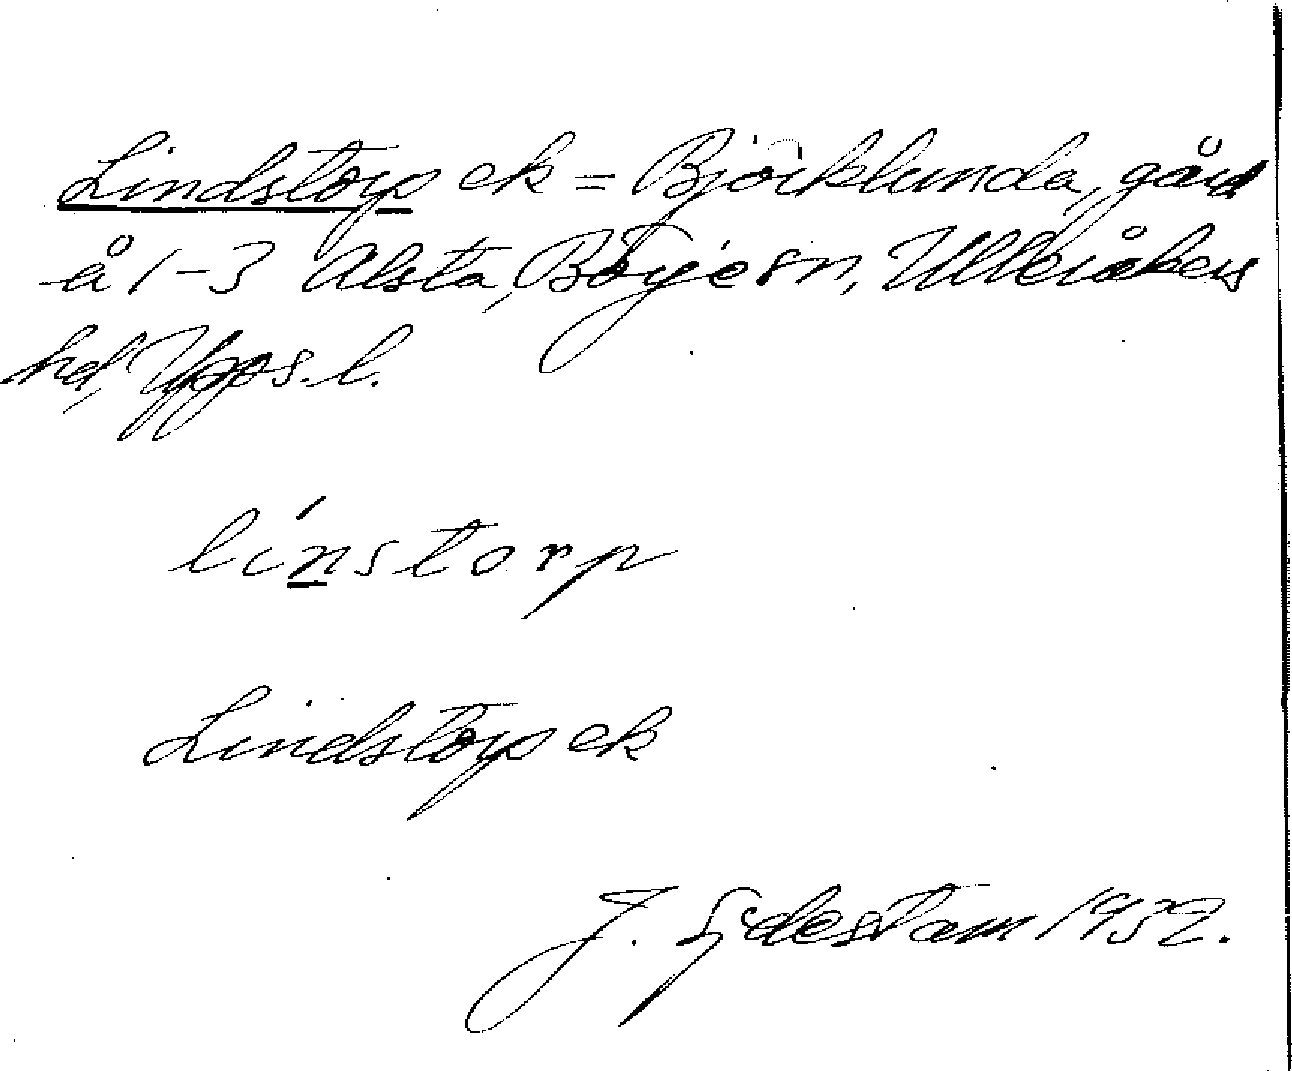 Lindstorp ek = Björklunda, gård
å 1-3 Alsta, Börje sn, Ulleråkers
hd, Upps. l.
línstorp
Lindstorp ek
J. Sydestam 1932.